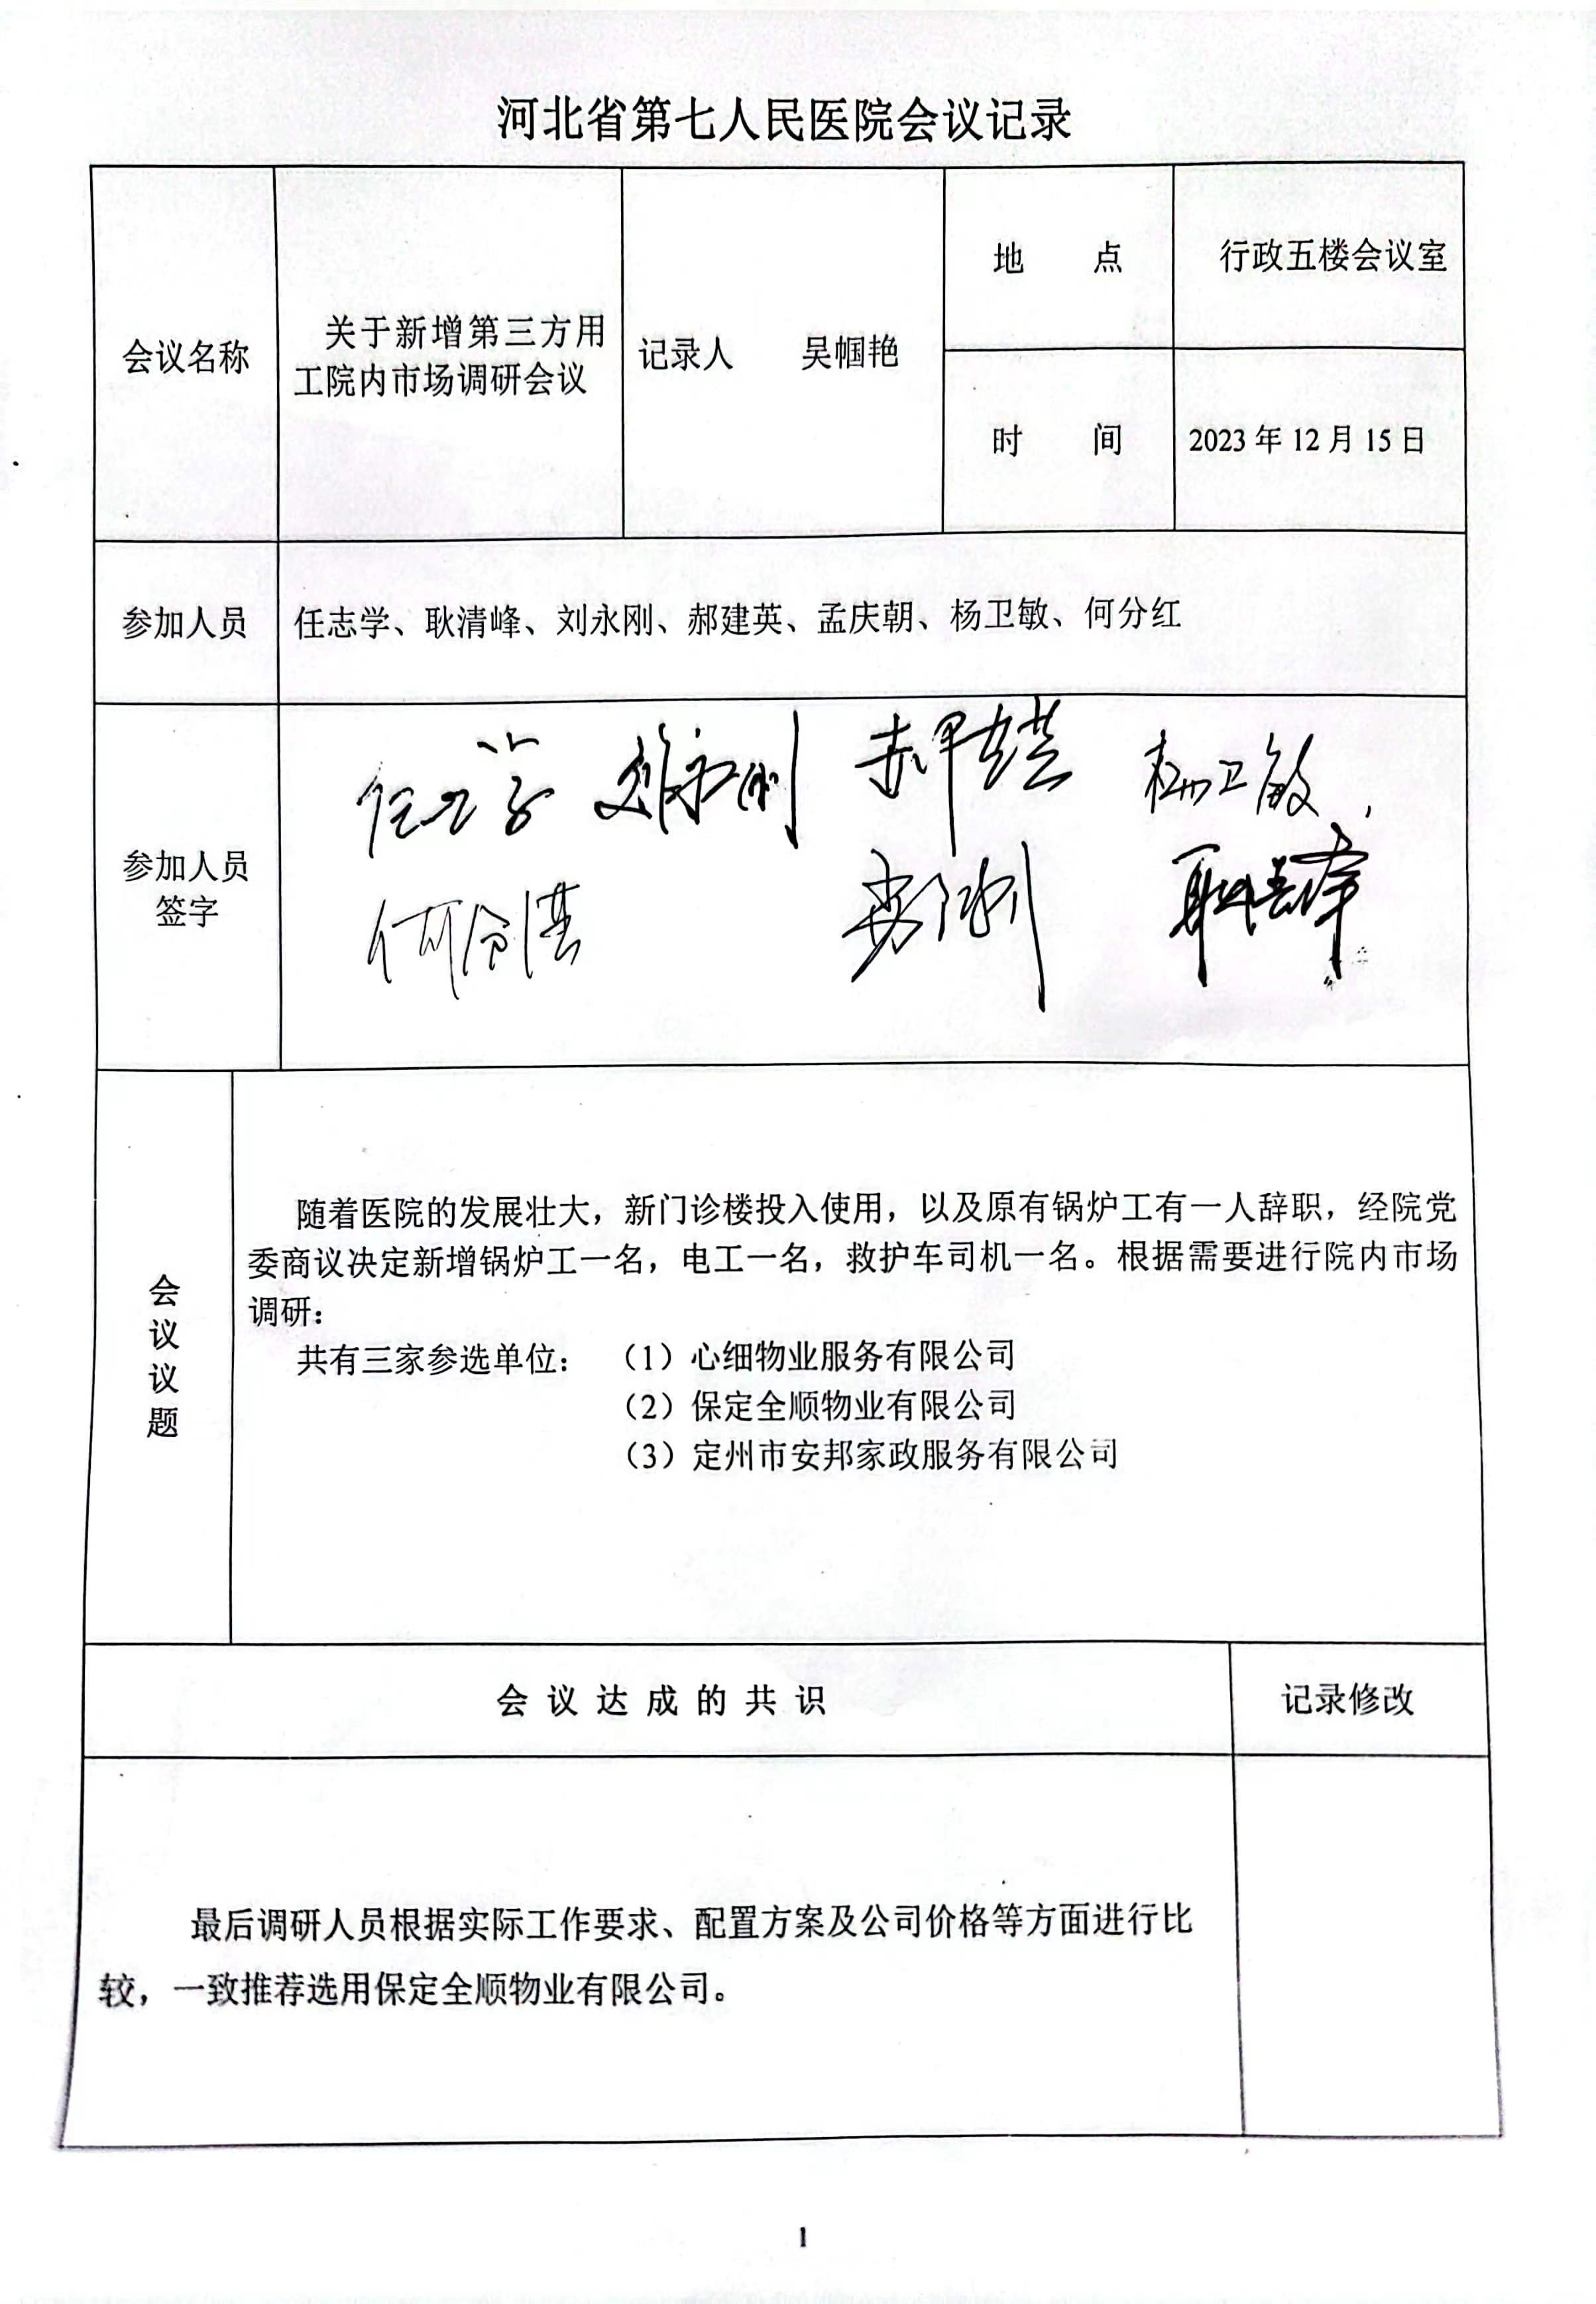 河北省第七人民医院会议记录
会议名称
关于新增第三方用
工院内市场调研会议
记录人 吴帼艳
地 点
行政五楼会议室
时 间
2023年12月15日
参加人员
任志学、耿清峰、刘永刚、郝建英、孟庆朝、杨卫敏、何分红
参加人员
签字
任志学 刘永刚 郝建英 杨卫敏
何分红 耿清峰
会
议
议
题
随着医院的发展壮大，新门诊楼投入使用，以及原有锅炉工有一人辞职，经院党
委商议决定新增锅炉工一名，电工一名，救护车司机一名。根据需要进行院内市场
调研：
共有三家参选单位： （1）心细物业服务有限公司
（2）保定全顺物业有限公司
（3）定州市安邦家政服务有限公司
会议达成的共识
记录修改
最后调研人员根据实际工作要求、配置方案及公司价格等方面进行比
较，一致推荐选用保定全顺物业有限公司。
1